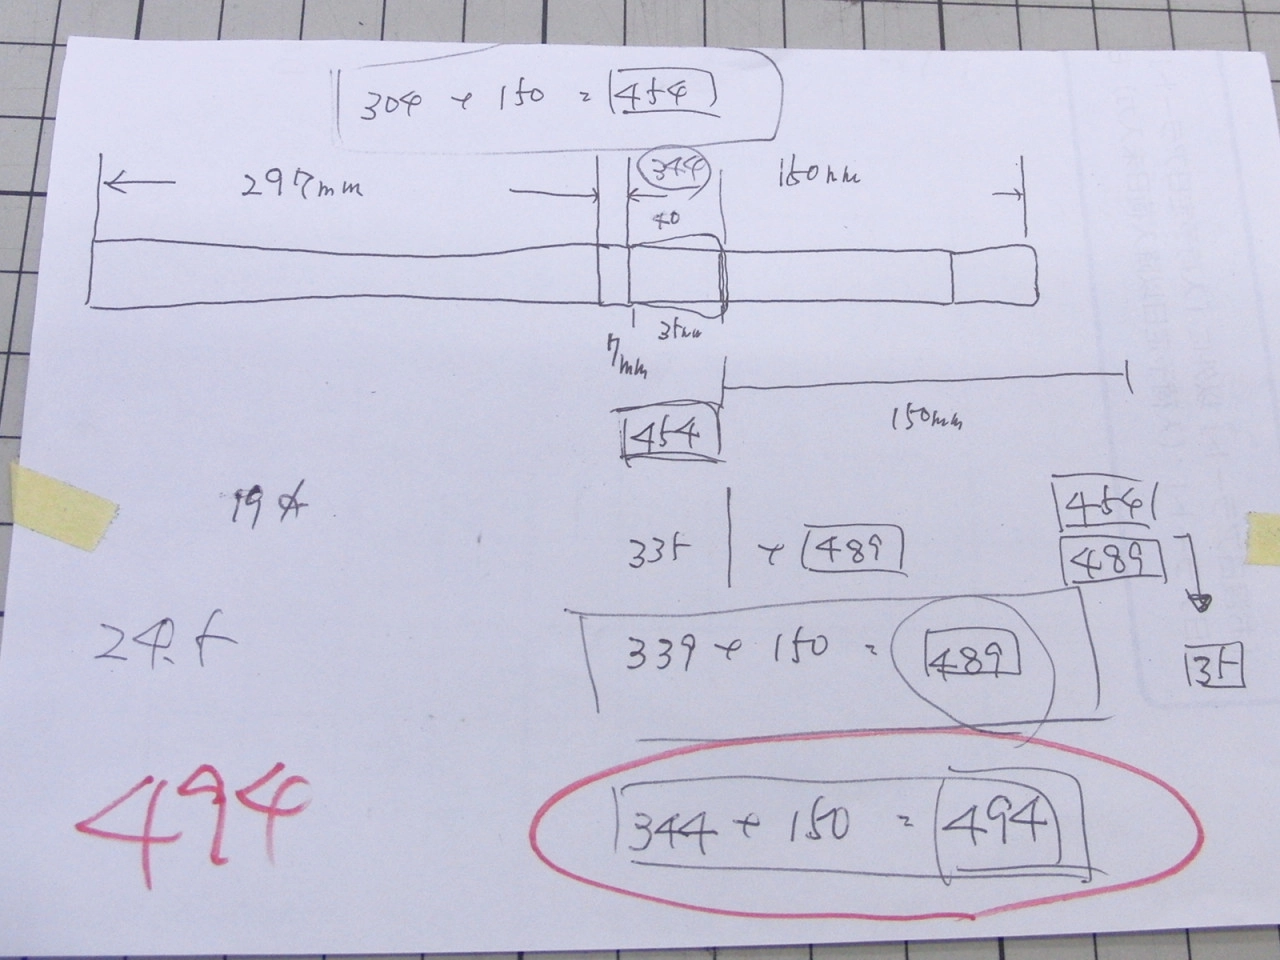 304 + 150 = 454
297mm
344
150mm
40
35mm
7mm
150mm
454
454
335 + 489
489
24.5
339 + 150 = 489
35
494
344 + 150 = 494